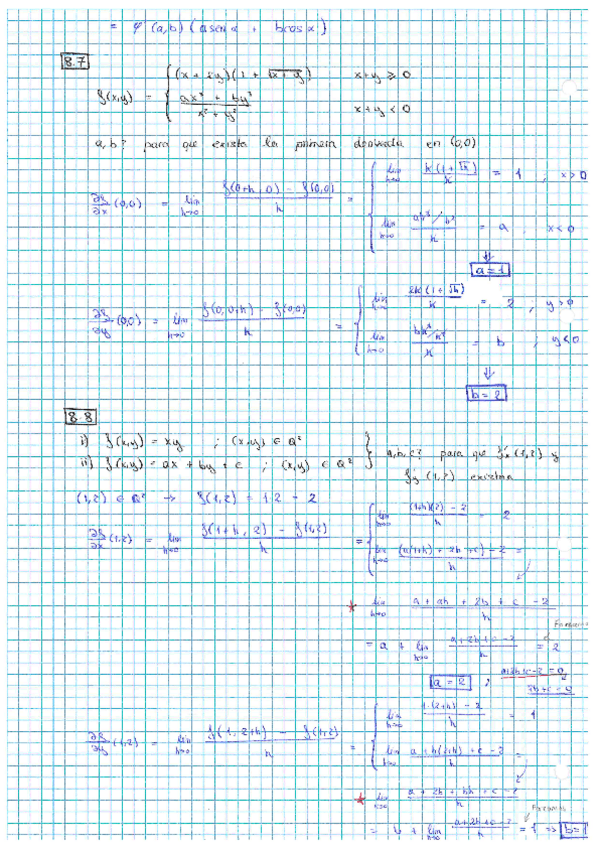 = φ'(a,b) (a senα + b cosα)
8.7
f(x,y) = { (x + 2y)(1 + √(x+y))    x+y ≥ 0
(ax³ + by³)/(x² + y²)    x+y < 0
a,b? para que exista la primera derivada en (0,0)
∂f/∂x (0,0) = lim h→0 (f(0+h, 0) - f(0,0))/h = { lim h→0 h(1+√h)/h = 1 , x>0
lim h→0 (ah³/h²)/h = a , x<0
⇓
a=1
∂f/∂y (0,0) = lim h→0 (f(0,0+h) - f(0,0))/h = { lim h→0 2h(1+√h)/h = 2 , y>0
lim h→0 (bh³/h²)/h = b ; y<0
⇓
b=2
8.8
i) f(x,y) = xy ; (x,y) ∈ Q²
ii) f(x,y) = ax + by + c ; (x,y) ∉ Q² } a,b,c? para que f'x (1,2) y
f'y (1,2) existan
(1,2) ∈ Q² → f(1,2) = 1·2 = 2
∂f/∂x (1,2) = lim h→0 (f(1+h, 2) - f(1,2))/h = { lim h→0 ((1+h)(2) - 2)/h = 2
lim h→0 (a(1+h) + 2b + c) - 2/h =
★ lim h→0 (a + ah + 2b + c - 2)/h
= a + lim h→0 (a+2b+c-2)/h = 2
a = 2 ; a+2b+c-2 = 0
2b+c = 0
∂f/∂y (1,2) = lim h→0 (f(1, 2+h) - f(1,2))/h = { lim h→0 (1·(2+h) - 2)/h = 1
lim h→0 (a + b(2+h) + c - 2)/h =
★ lim h→0 (a + 2b + bh + c - 2)/h
= b + lim h→0 (a+2b+c-2)/h = 1 ⇒ b=1